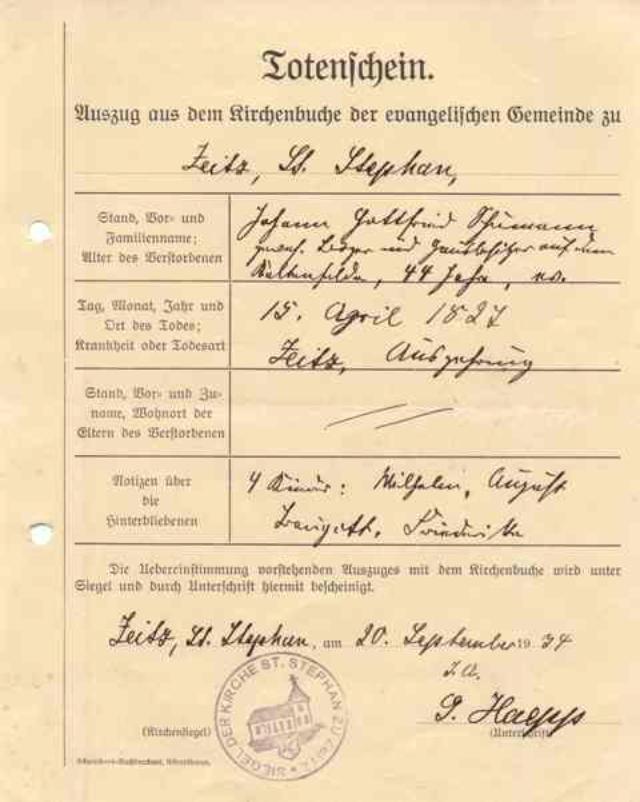 Totenschein.
Auszug aus dem Kirchenbuche der evangelischen Gemeinde zu
Zeitz, St. Stephan,
Stand, Vor- und
Familienname;
Alter des Verstorbenen
Johann Gottfried Schumann
und auf dem
44 Jahr, ev.
Tag, Monat, Jahr und
Ort des Todes;
Krankheit oder Todesart
15. April 1827
Zeitz, Auszehrung
Stand, Vor- und Zu-
name, Wohnort der
Eltern des Verstorbenen
Notizen über
die
Hinterbliebenen
4 Kinder: Wilhelm, August
Traugott, Friederike
Die Uebereinstimmung vorstehenden Auszuges mit dem Kirchenbuche wird unter
Siegel und durch Unterschrift hiermit bescheinigt.
Zeitz, St. Stephan, am 20. September 1934
I. A.
(Kirchensiegel)
SIEGEL DER KIRCHE ST. STEPHAN ZU ZEITZ
(Unterschrift)